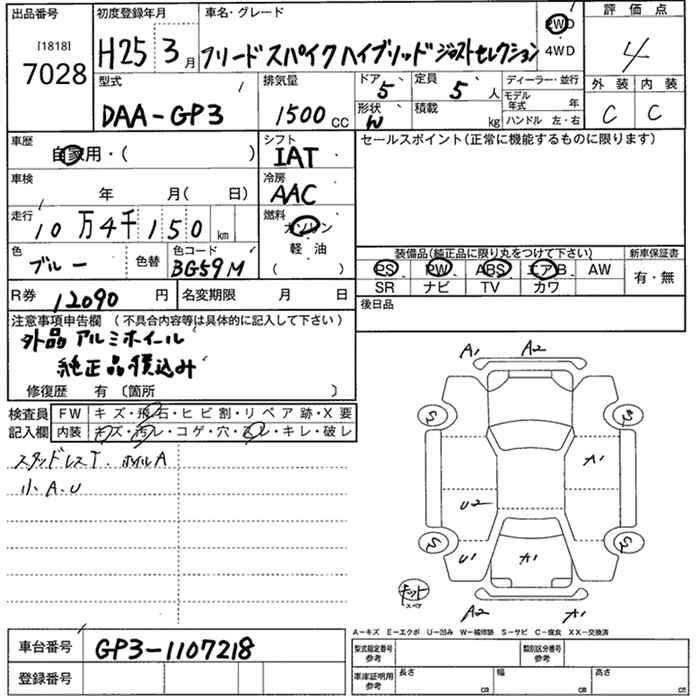 出品番号
[1818]
7028
初度登録年月
H25 3月
車名・グレード
フリード スパイクハイブリッド ジャストセレクション
2WD
4WD
評価点
4
型式
DAA-GP3
排気量
1500 CC
ドア 5
定員 5 人
形状 W
積載 kg
ディーラー・並行
モデル年式 年
ハンドル 左・右
外装 内装
C C
車歴
自家用・( )
シフト
IAT
セールスポイント(正常に機能するものに限ります)
車検
年 月( 日)
冷房
AAC
走行
10万4千150 km
燃料
ガソリン
軽・油
( )
色
ブルー
色替
色コード
BG59M
装備品(純正品に限り丸をつけて下さい)
新車保証書
PS PW ABS エアB. AW
SR ナビ TV カワ
有・無
R券 12090 円
名変期限 月 日
後日品
注意事項申告欄 (不具合内容等は具体的に記入して下さい)
外品 アルミホイール
純正品積込み
修復歴 有 〔箇所 〕
検査員
記入欄
FW キズ・飛石・ヒビ割・リペア跡・X要
内装 キズ・汚レ・コゲ・穴・スレ・キレ・破レ
スタッドレスT. ホイルA
小A.U
A1 A2
S S
A1
U2
S S
U1 A1
スペア
A2 A1
A-キズ E-エクボ U-凹み W-補修跡 S-サビ C-腐食 XX-交換済
車台番号 GP3-1107218
登録番号
型式指定番号
参考
類別区分番号
参考
車庫証明用
参考
長さ cm
幅 cm
高さ cm